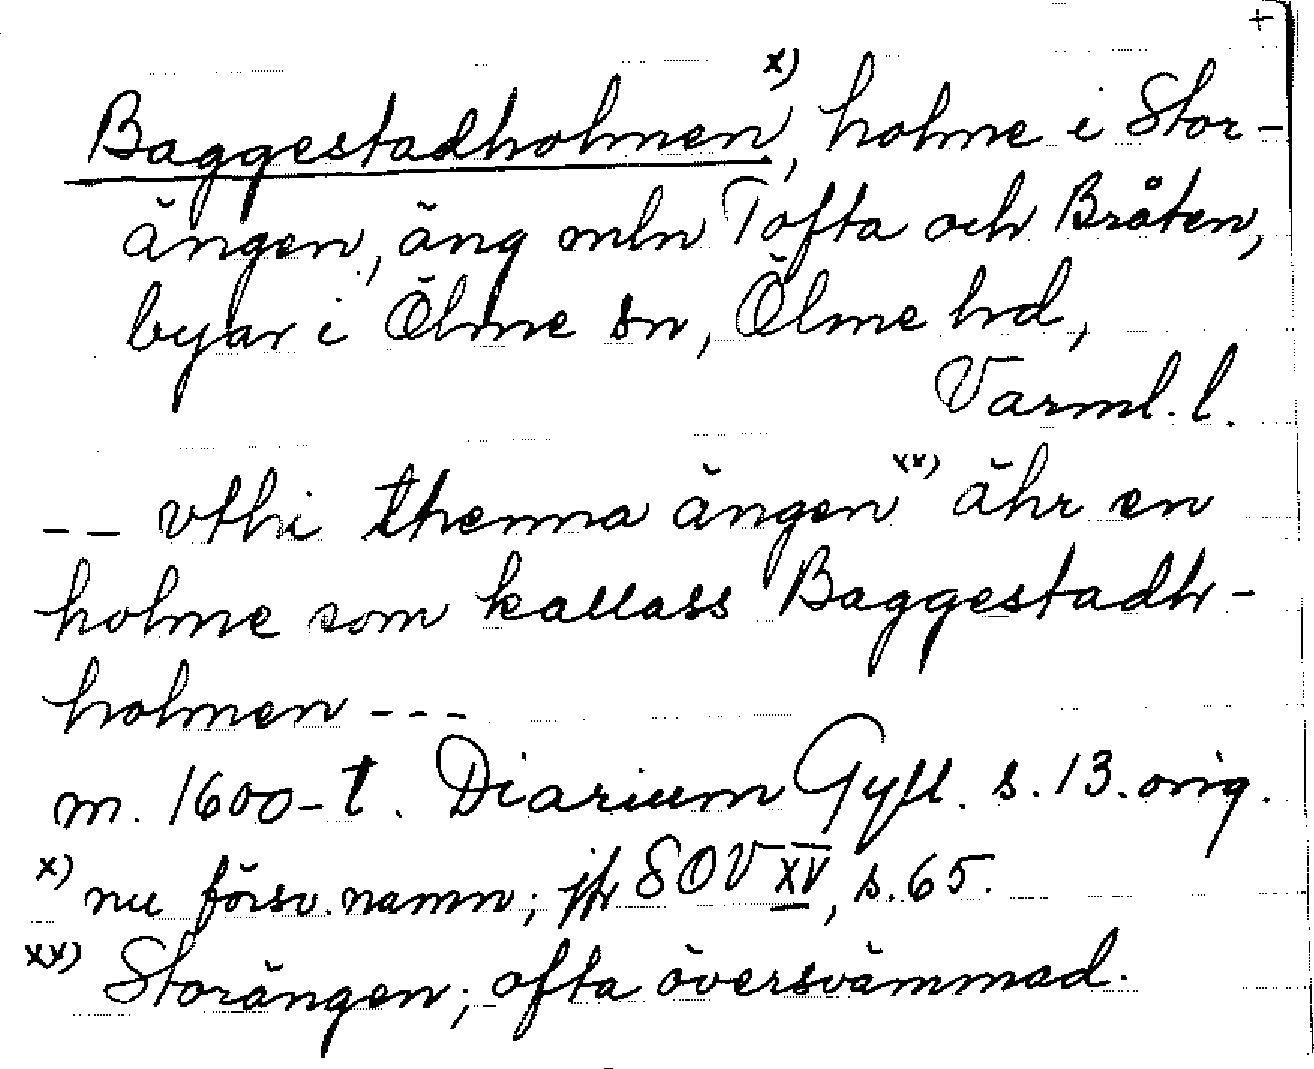 +
Baggestadholmen x), holme i Stor-
ängen, äng mln Tofta och Bråten,
byar i Ölme sn, Ölme hd,
Varml. l.
-- vthi thenna ängen xx) ähr en
holme som kallass Baggestadh-
holmen ---
m. 1600-t. Diarium Gyll. s. 13. orig.
x) nu försv. namn; jfr SOV XV, s. 65.
xx) Storängen; ofta översvämmad.